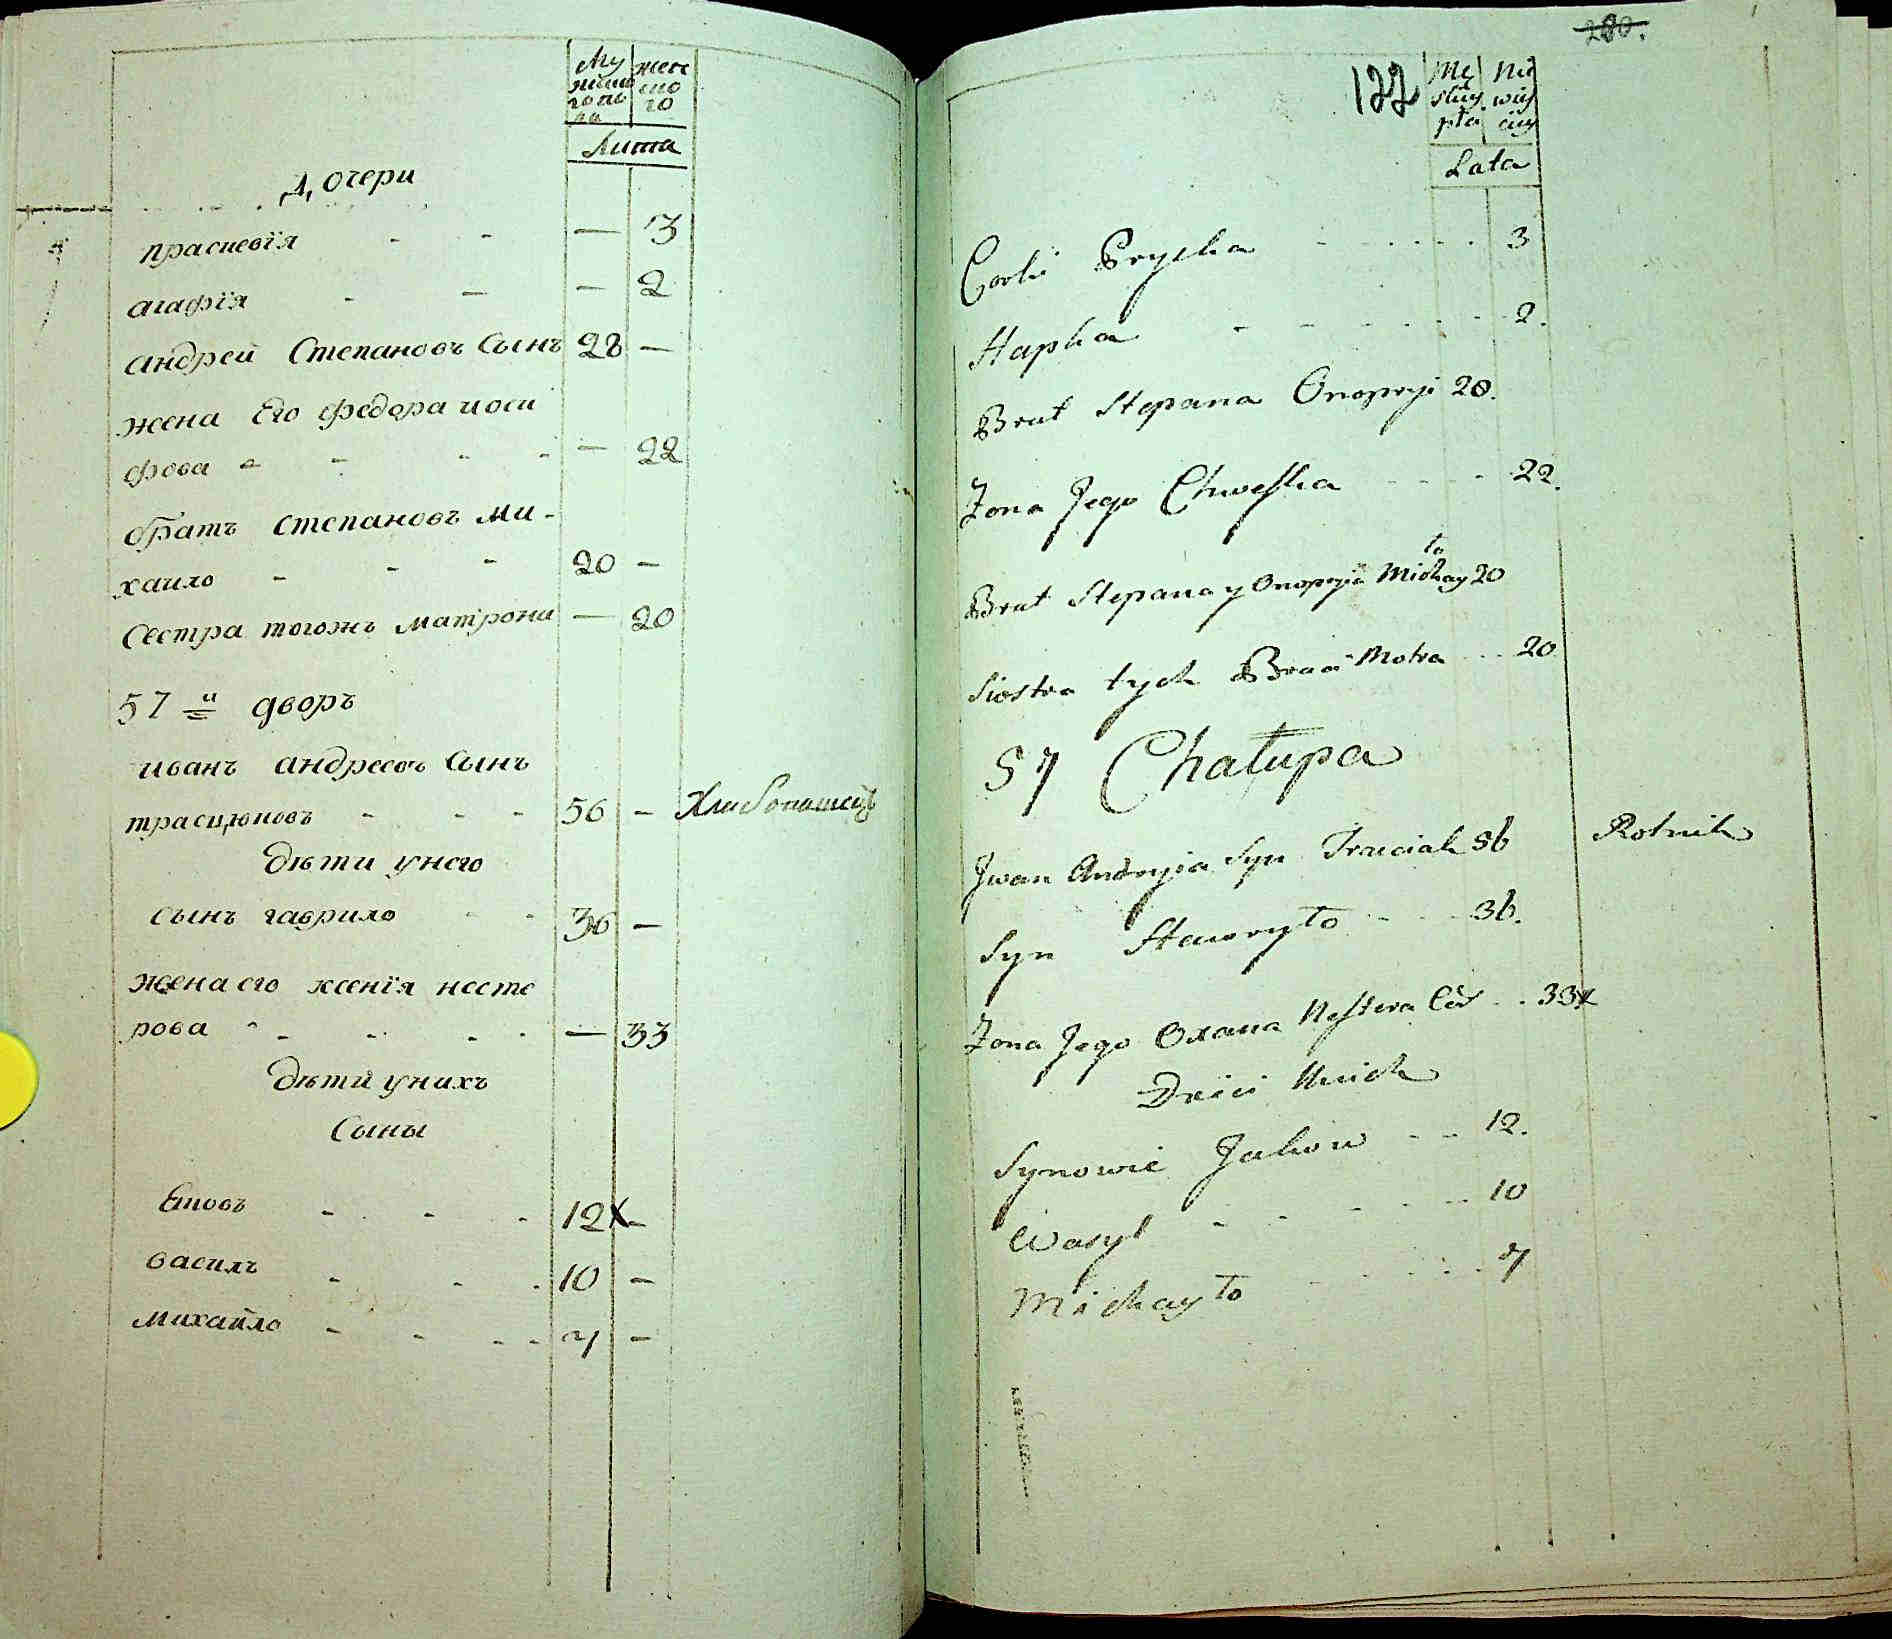 Му
жеск
жско
ского
го по
го
ла
Лѣта
Дочери
прасковїя - - — 3
агафїя - - — 2
андрей Степановъ Сынъ 28 —
жена Его федора иоси
фова - - - - — 22
братъ степановъ ми-
хаило - - - 20 —
Сестра тогожъ матрона — 20
57 й дворъ
иванъ андреевъ Сынъ
трасцюновъ - - - 56 — Хлебопашецъ
дѣти унего
сынъ гаврило - - 36 —
жена его ксенїя несте
рова - - - - - — 33
дѣти унихъ
Сыны
Яковъ - - - 12 x -
василь - - - 10 —
михайло - - - - 7 —
280.
122
Mę Nie
skiey wieś
płci ciey
Lata
Corki Pryska - - - - - 3
Hapka - - - - - - 2.
Brat Stepana Onopryi 28.
Zona Jego Chweska - - - 22.
Brat Stepana y Onopryia Michayło 20
Siostra tych Braci Motra - - - 20
57 Chałupa
Jwan Andryia Syn Trasciak 56 Rolnik
Syn Hawryło - - - 36.
Zona Jego Oxana Nestera Cór - - 33x
Dzieci Unich
Synowie Jakow - - - 12.
Wasyl - - - - - 10
Michayło - - - - - 7